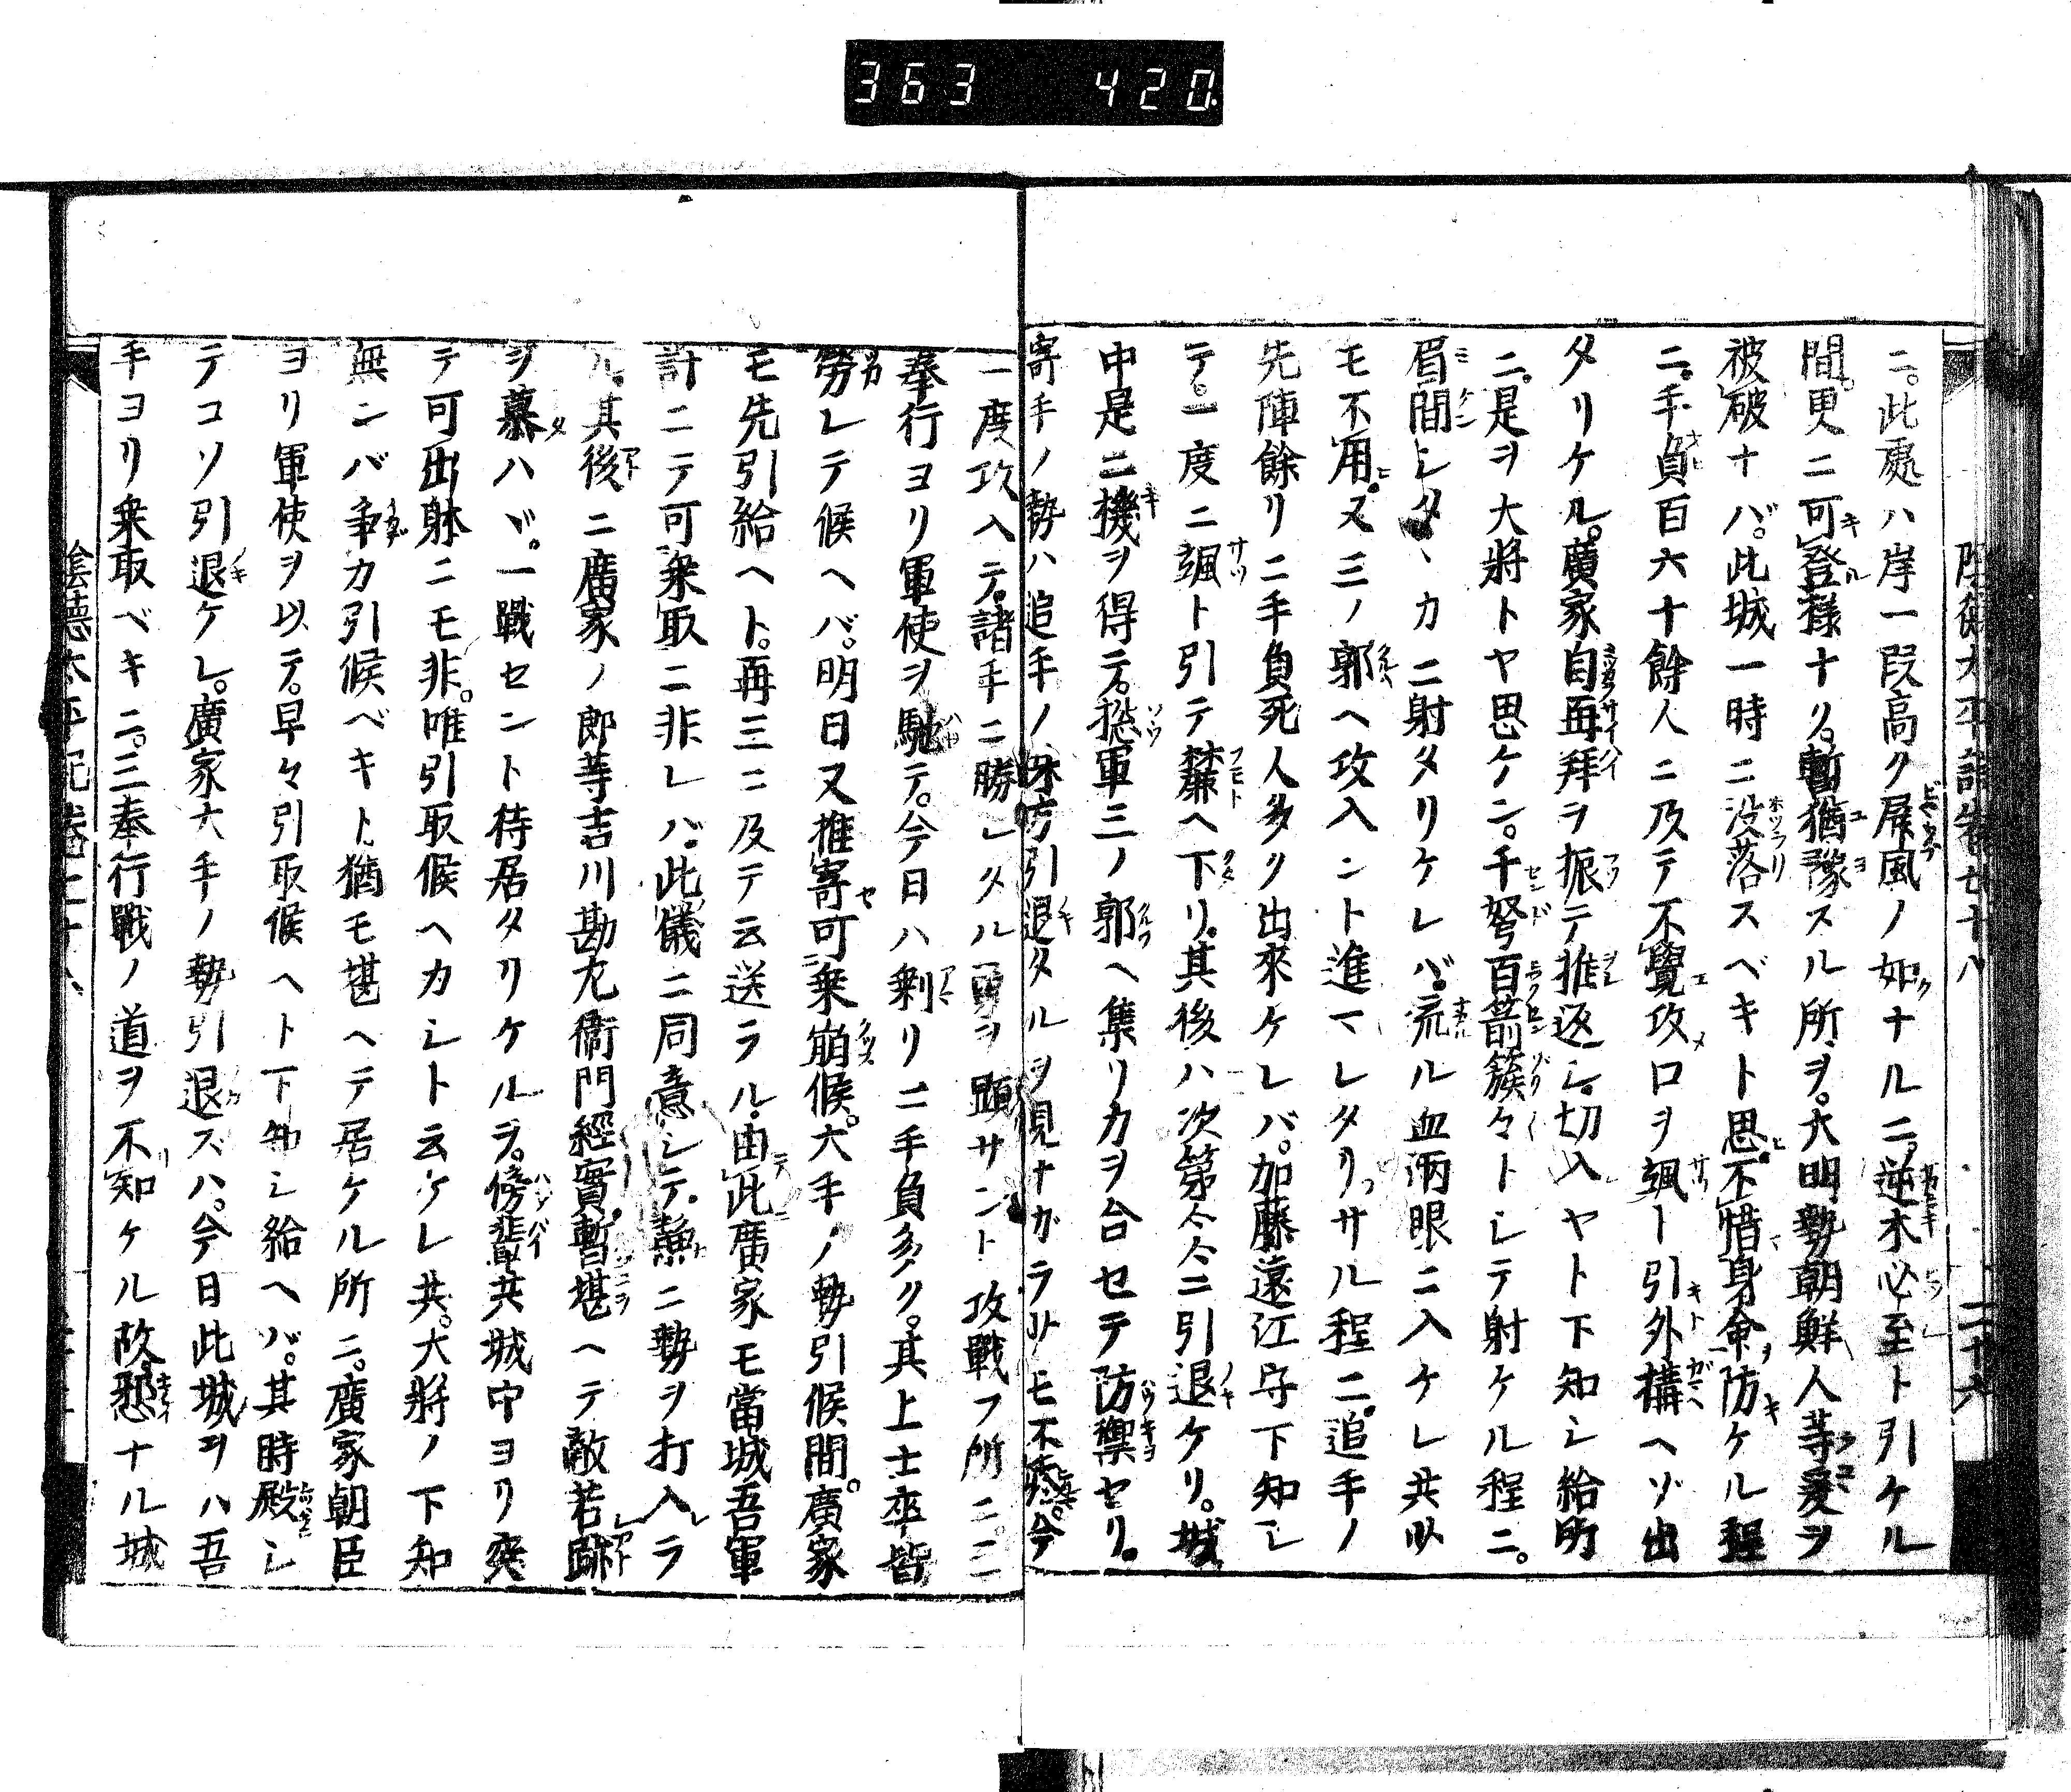 363 420.
ニ。此處ハ岸一段高ク屏風ノ如ナルニ。逆木必至ト引ケル
間。更ニ可登様ナリ。暫猶豫スル所ヲ。大明勢朝鮮人等爰ヲ
被破ナバ。此城一時ニ没落スベキト思。不惜身命防ケル程
ニ。手負百六十餘人ニ及テ不覺攻口ヲ颯ト引外構ヘゾ出
タリケル。廣家自再拜ヲ振テ推返シ。切入ヤト下知シ給所
ニ。是ヲ大將トヤ思ケン。千弩百箭簇々トシテ射ケル程ニ。
眉間シタヽカニ射タリケレバ。流ル血両眼ニ入ケレ共少
モ不用。又三ノ郭ヘ攻入ント進マレタリ。サル程ニ。追手ノ
先陣餘リニ手負死人多ク出來ケレバ。加藤遠江守下知シ
テ。一度ニ颯ト引テ麓ヘ下リ。其後ハ次第々々ニ引退ケリ。城
中是ニ機ヲ得テ。捴軍三ノ郭ヘ集リカヲ合セテ防禦セリ。
寄手ノ勢ハ追手ノ味方引退タルヲ見ナガラ少モ不。今
一度攻入テ。諸手ニ勝レタル勇ヲ顕サント攻戰フ所ニ。三
奉行ヨリ軍使ヲ馳テ。今日ハ剰リニ手負多ク。其上士卒皆
勞レテ候ヘバ。明日又推寄可乗崩候。大手ノ勢引候間。廣家
モ先引給ヘト。再三ニ及テ云送ラル。由此廣家モ當城吾軍
計ニテ可乗取ニ非レバ。此儀ニ同意シテ。静ニ勢ヲ打入ラ
ル。其後ニ廣家ノ郎等吉川勘左衞門經實。暫堪ヘテ敵若跡
ヲ慕ハヾ。一戰セント待居タリケルヲ。傍輩共城中ヨリ突
テ可出躰ニモ非。唯引取候ヘカシト云ケレ共。大將ノ下知
無ンバ争カ引候ベキト。猶モ堪ヘテ居ケル所ニ。廣家朝臣
ヨリ軍使ヲ以テ。早々引取候ヘト下知シ給ヘバ。其時殿シ
テコソ引退ケレ。廣家大手ノ勢引退ズハ。今日此城ヲハ吾
手ヨリ乗取ベキニ。三奉行戰ノ道ヲ不知ケル故。恐ナル城
陰徳太平記巻七十八